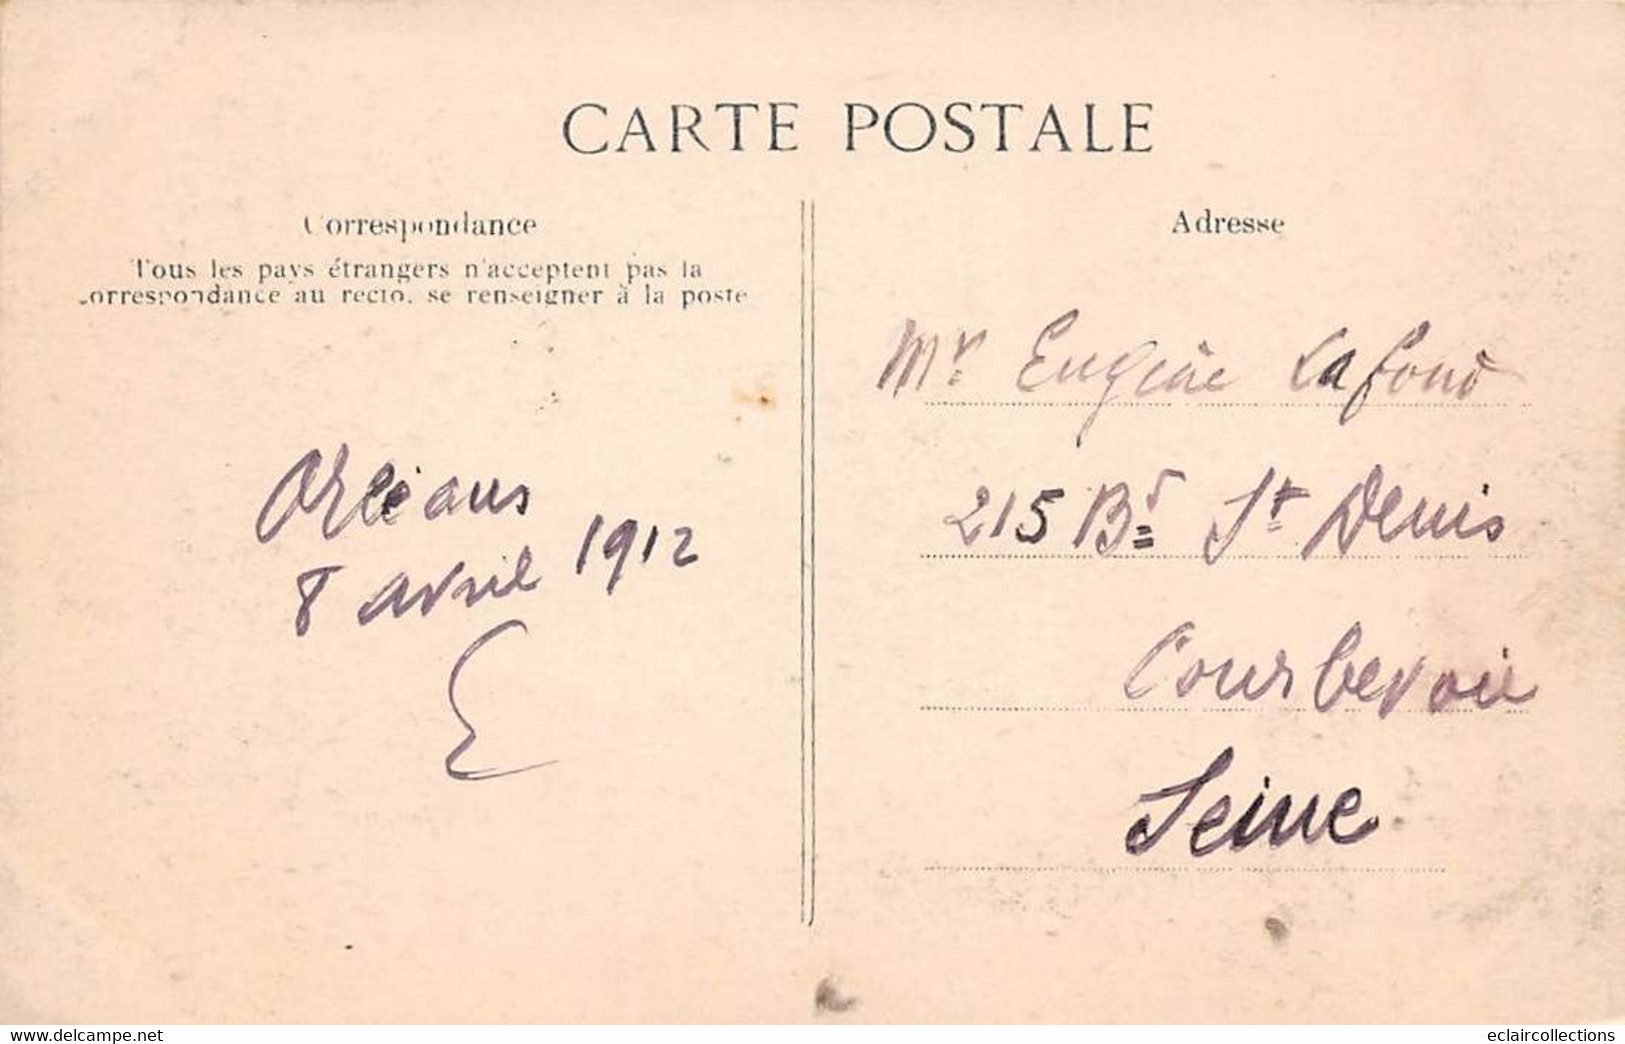 CARTE POSTALE
Correspondance
Tous les pays étrangers n'acceptent pas la
correspondance au recto, se renseigner à la poste
Orléans
8 avril 1912
E
Adresse
Mr Eugène Lafond
215 Bd St Denis
Courbevoie
Seine
eclaircollections